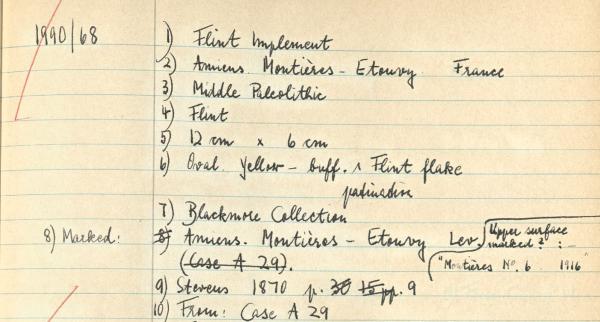 1990/68 1) Flint Implement
2) Amiens. Montières - Etouvy France
3) Middle Paleolithic
4) Flint
5) 12 cm x 6 cm
6) Oval. Yellow - buff. ^ Flint flake
patination
7) Blackmore Collection
8) Marked: 8) Amiens. Montières - Etouvy Lev.
Upper surface
marked? : -
(Case A 29).
"Montières No. 6 1916"
9) Stevens 1870 p. 30 15 pp. 9
10) From: Case A 29